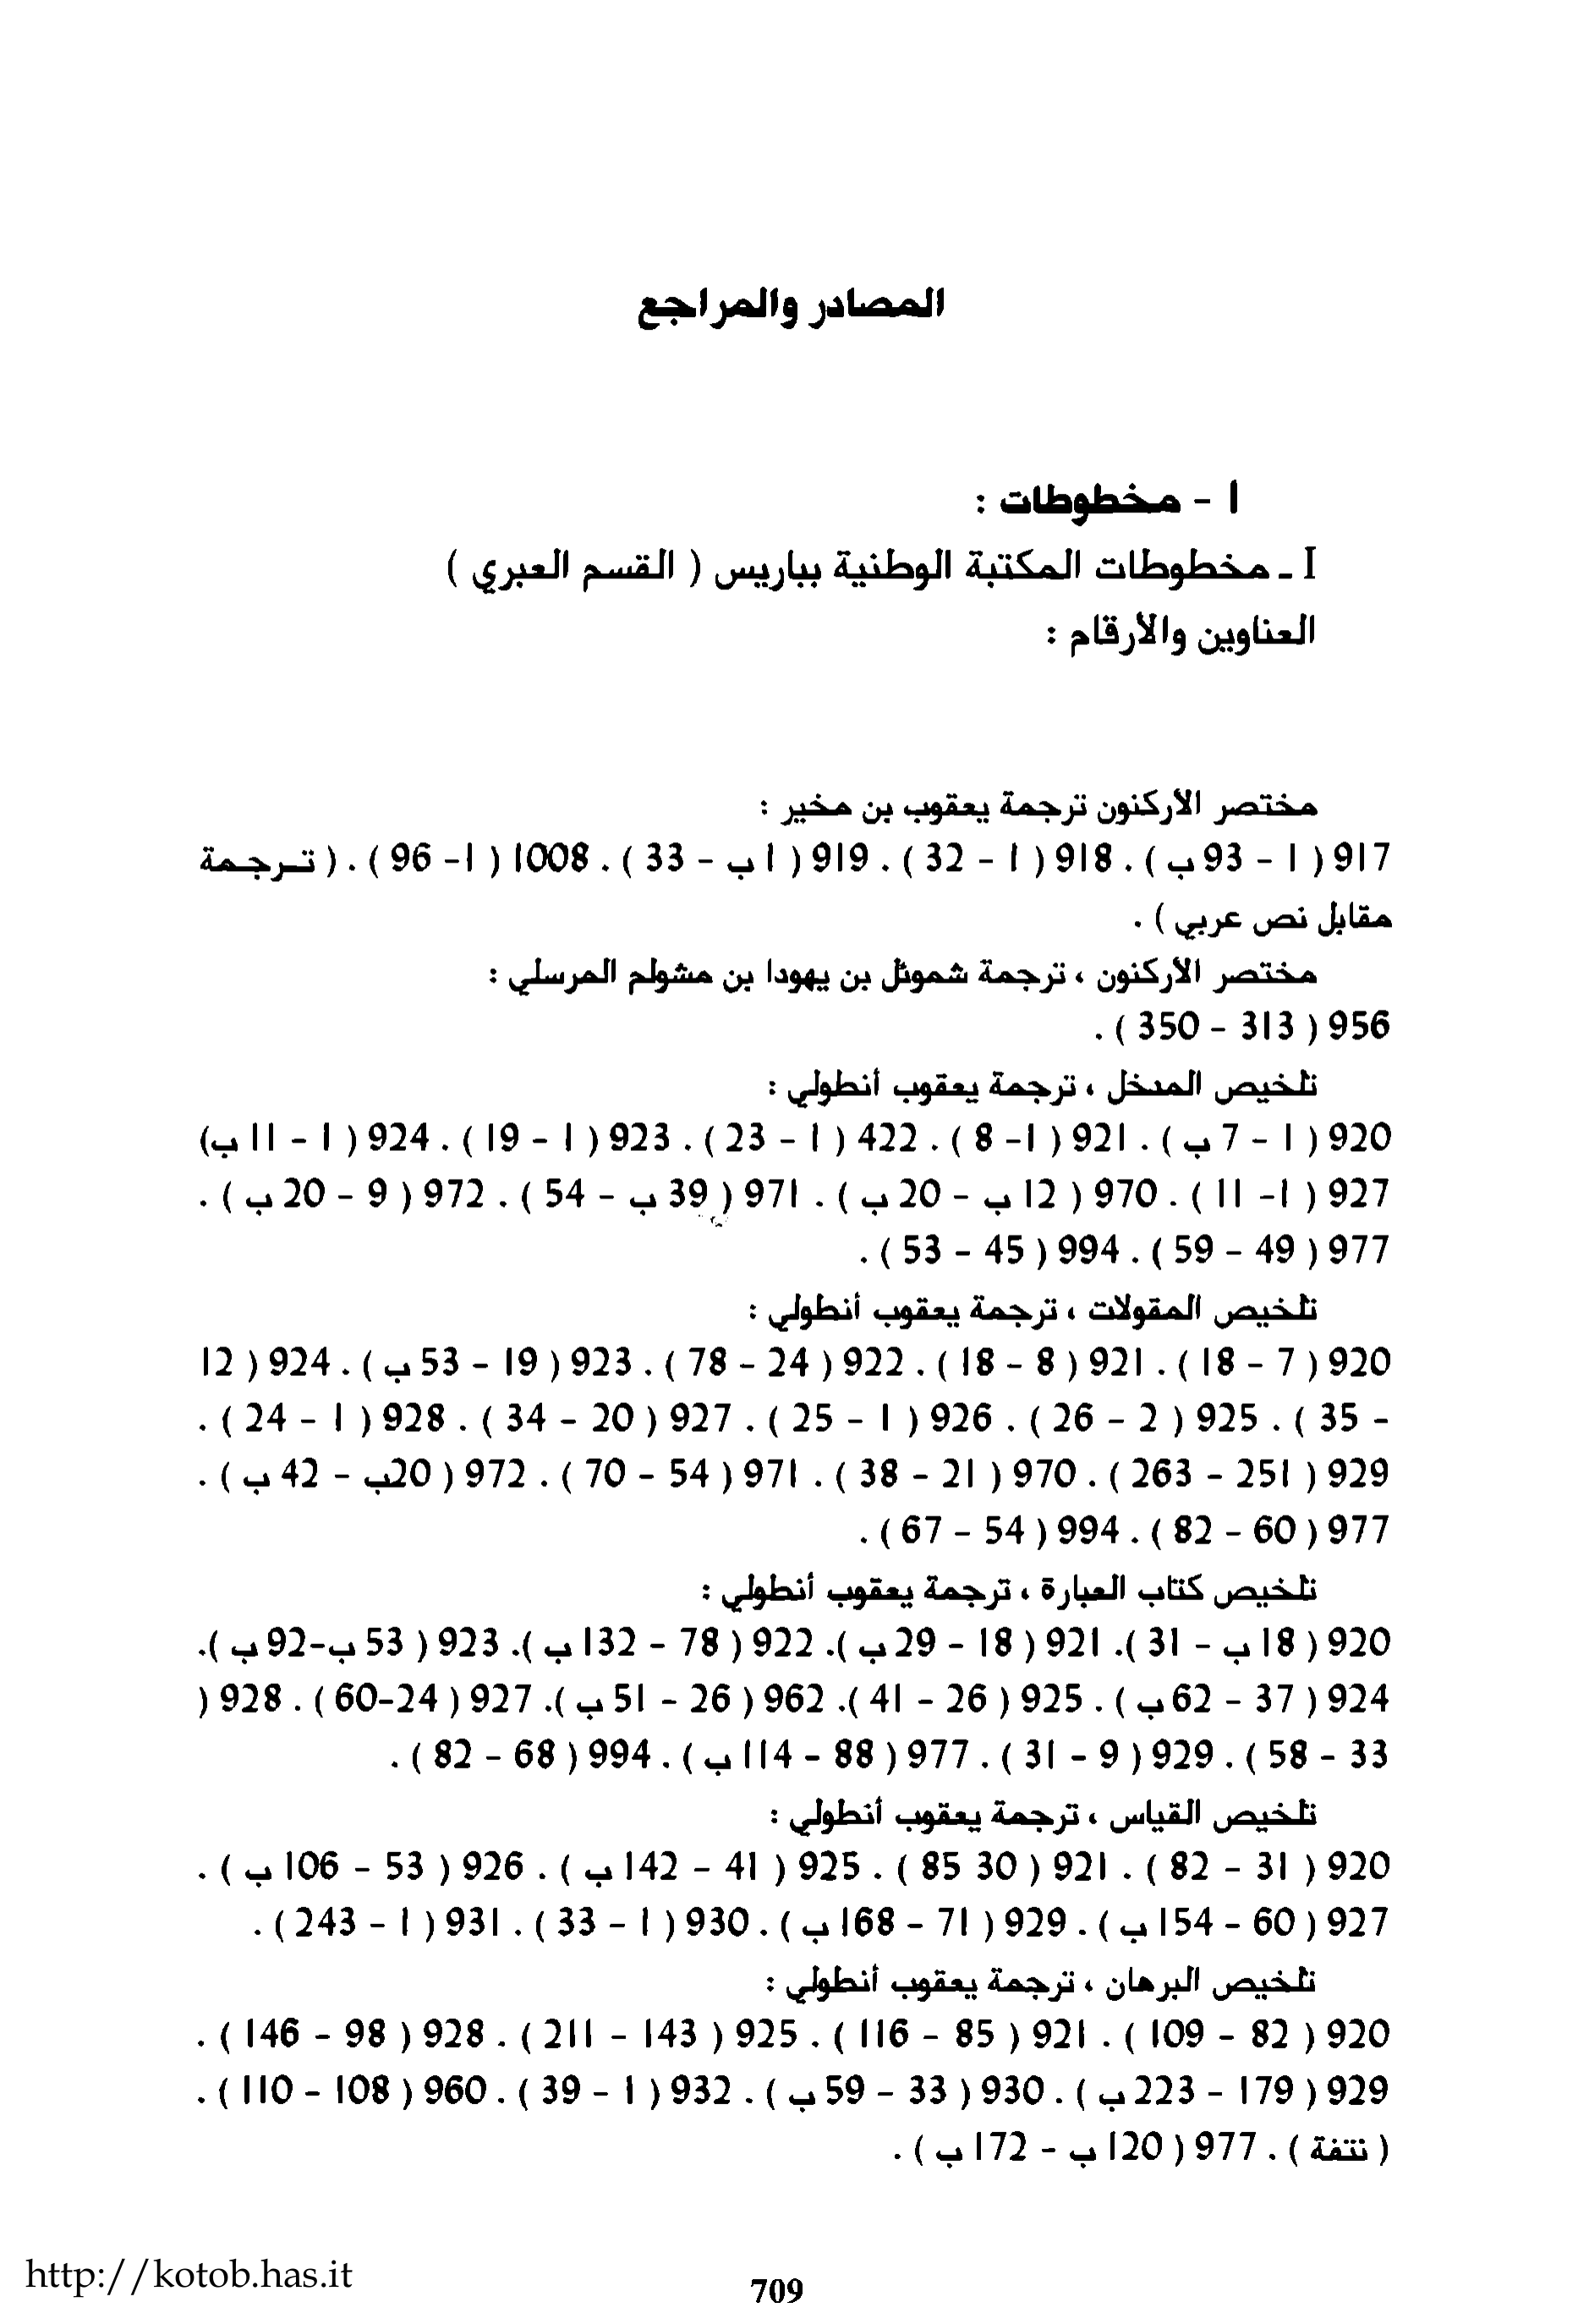 المصادر والمراجع
ا - مخطوطات :
I ـ مخطوطات المكتبة الوطنية بباريس ( القسم العبري )
العناوين والأرقام :
مختصر الأركنون ترجمة يعقوب بن مخير :
917 ( 1 - 93 ب ) . 918 ( 1 - 32 ) . 919 ( 1 ب - 33 ) . 1008 ( 1- 96 ) . ( ترجمة
مقابل نص عربي ) .
مختصر الأركنون ، ترجمة شموئل بن يهودا بن مشولم المرسلي :
956 ( 313 - 350 ) .
تلخيص المدخل ، ترجمة يعقوب أنطولي :
920 ( 1 - 7 ب ) . 921 ( 1- 8 ) . 422 ( 1 - 23 ) . 923 ( 1 - 19 ) . 924 ( 1 - 11 ب)
927 ( 1- 11 ) . 970 ( 12 ب - 20 ب ) . 971 ( 39 ب - 54 ) . 972 ( 9 - 20 ب ) .
977 ( 49 - 59 ) . 994 ( 45 - 53 ) .
تلخيص المقولات ، ترجمة يعقوب أنطولي :
920 ( 7 - 18 ) . 921 ( 8 - 18 ) . 922 ( 24 - 78 ) . 923 ( 19 - 53 ب ) . 924 ( 12
- 35 ) . 925 ( 2 - 26 ) . 926 ( 1 - 25 ) . 927 ( 20 - 34 ) . 928 ( 1 - 24 ) .
929 ( 251 - 263 ) . 970 ( 21 - 38 ) . 971 ( 54 - 70 ) . 972 ( 20ب - 42 ب ) .
977 ( 60 - 82 ) . 994 ( 54 - 67 ) .
تلخيص كتاب العبارة ، ترجمة يعقوب أنطولي :
920 ( 18 ب - 31 ). 921 ( 18 - 29 ب ). 922 ( 78 - 132 ب ). 923 ( 53 ب-92 ب ).
924 ( 37 - 62 ب ) . 925 ( 26 - 41 ). 962 ( 26 - 51 ب ). 927 ( 24-60 ) . 928 (
33 - 58 ) . 929 ( 9 - 31 ) . 977 ( 88 - 114 ب ) . 994 ( 68 - 82 ) .
تلخيص القياس ، ترجمة يعقوب أنطولي :
920 ( 31 - 82 ) . 921 ( 30 85 ) . 925 ( 41 - 142 ب ) . 926 ( 53 - 106 ب ) .
927 ( 60 - 154 ب ) . 929 ( 71 - 168 ب ) . 930 ( 1 - 33 ) . 931 ( 1 - 243 ) .
تلخيص البرهان ، ترجمة يعقوب أنطولي :
920 ( 82 - 109 ) . 921 ( 85 - 116 ) . 925 ( 143 - 211 ) . 928 ( 98 - 146 ) .
929 ( 179 - 223 ب ) . 930 ( 33 - 59 ب ) . 932 ( 1 - 39 ) . 960 ( 108 - 110 ) .
( نتفة ) . 977 ( 120 ب - 172 ب ) .
http://kotob.has.it
709